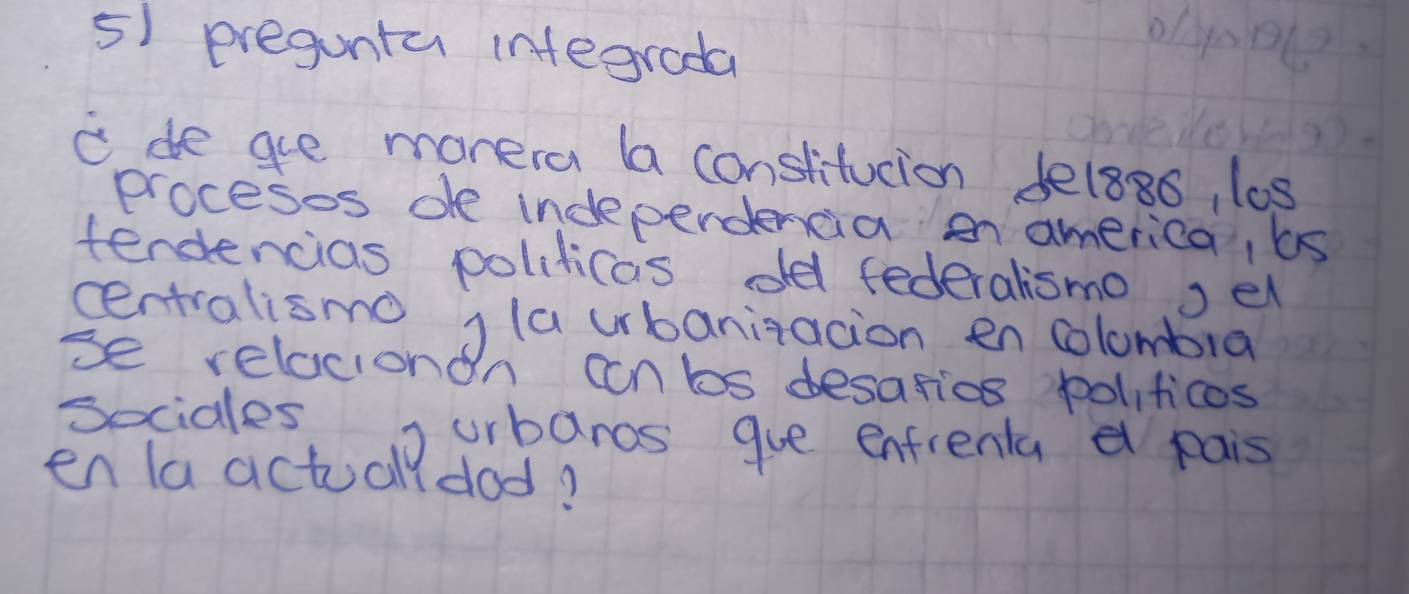 5) pregunta integrada
¿ de que manera la constitucion de1886, los
procesos de independencia en america, las
tendencias politicas del federalismo y el
centralismo y la urbanizacion en colombia
se relacionan con los desafios politicos
sociales y urbanos que enfrenta el pais
en la actualidad?